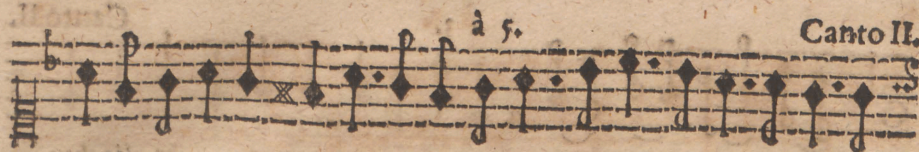 à 5. Canto II.